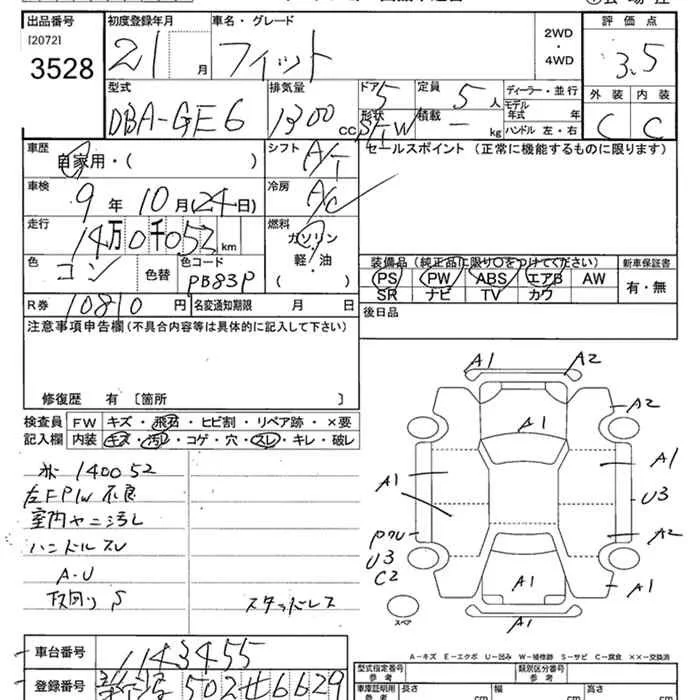 出品番号 初度登録年月 車名・グレード 評価点
[2072] 2WD
3528 21 月 フィット ・ 3.5
4WD
型式 排気量 ドア 5 定員 5人 ディーラー・並行 外装 内装
DBA-GE6 1300 cc 形状 S/W 積載 - kg モデル年式 年 C C
ハンドル 左・右
車歴 自家用・( ) シフト A/T セールスポイント (正常に機能するものに限ります)
車検 9年10月(24日) 冷房 A/C
走行 14万0千052km 燃料 ガソリン
軽・油
( )
色 コン 色替 色コード PB83P
装備品 (純正品に限り○をつけてください) 新車保証書
PS PW ABS エアB AW 有・無
SR ナビ TV カワ
R券 10810円 名変通知期限 月 日 後日品
注意事項申告欄(不具合内容等は具体的に記入して下さい)
修復歴 有 〔箇所 〕
検査員 FW キズ・飛石・ヒビ割・リペア跡・×要
記入欄 内装 キズ・汚レ・コゲ・穴・スレ・キレ・破レ
14005 2
左FP/W不良
室内ヤニ汚レ
ハンドルスレ
A・U
下回りS
スタッドレス
A1 A2
A1 A2
A1 A1
U3
A2
U3
C2
A1 A1
A1
スペア
A-キズ E-エクボ U-凹み W-補修跡 S-サビ C-腐食 ××-交換済
車台番号 1143455
登録番号 502 せ 6629
型式指定番号 参考 類別区分番号 参考
車庫証明用 参考 長さ cm 幅 cm 高さ cm